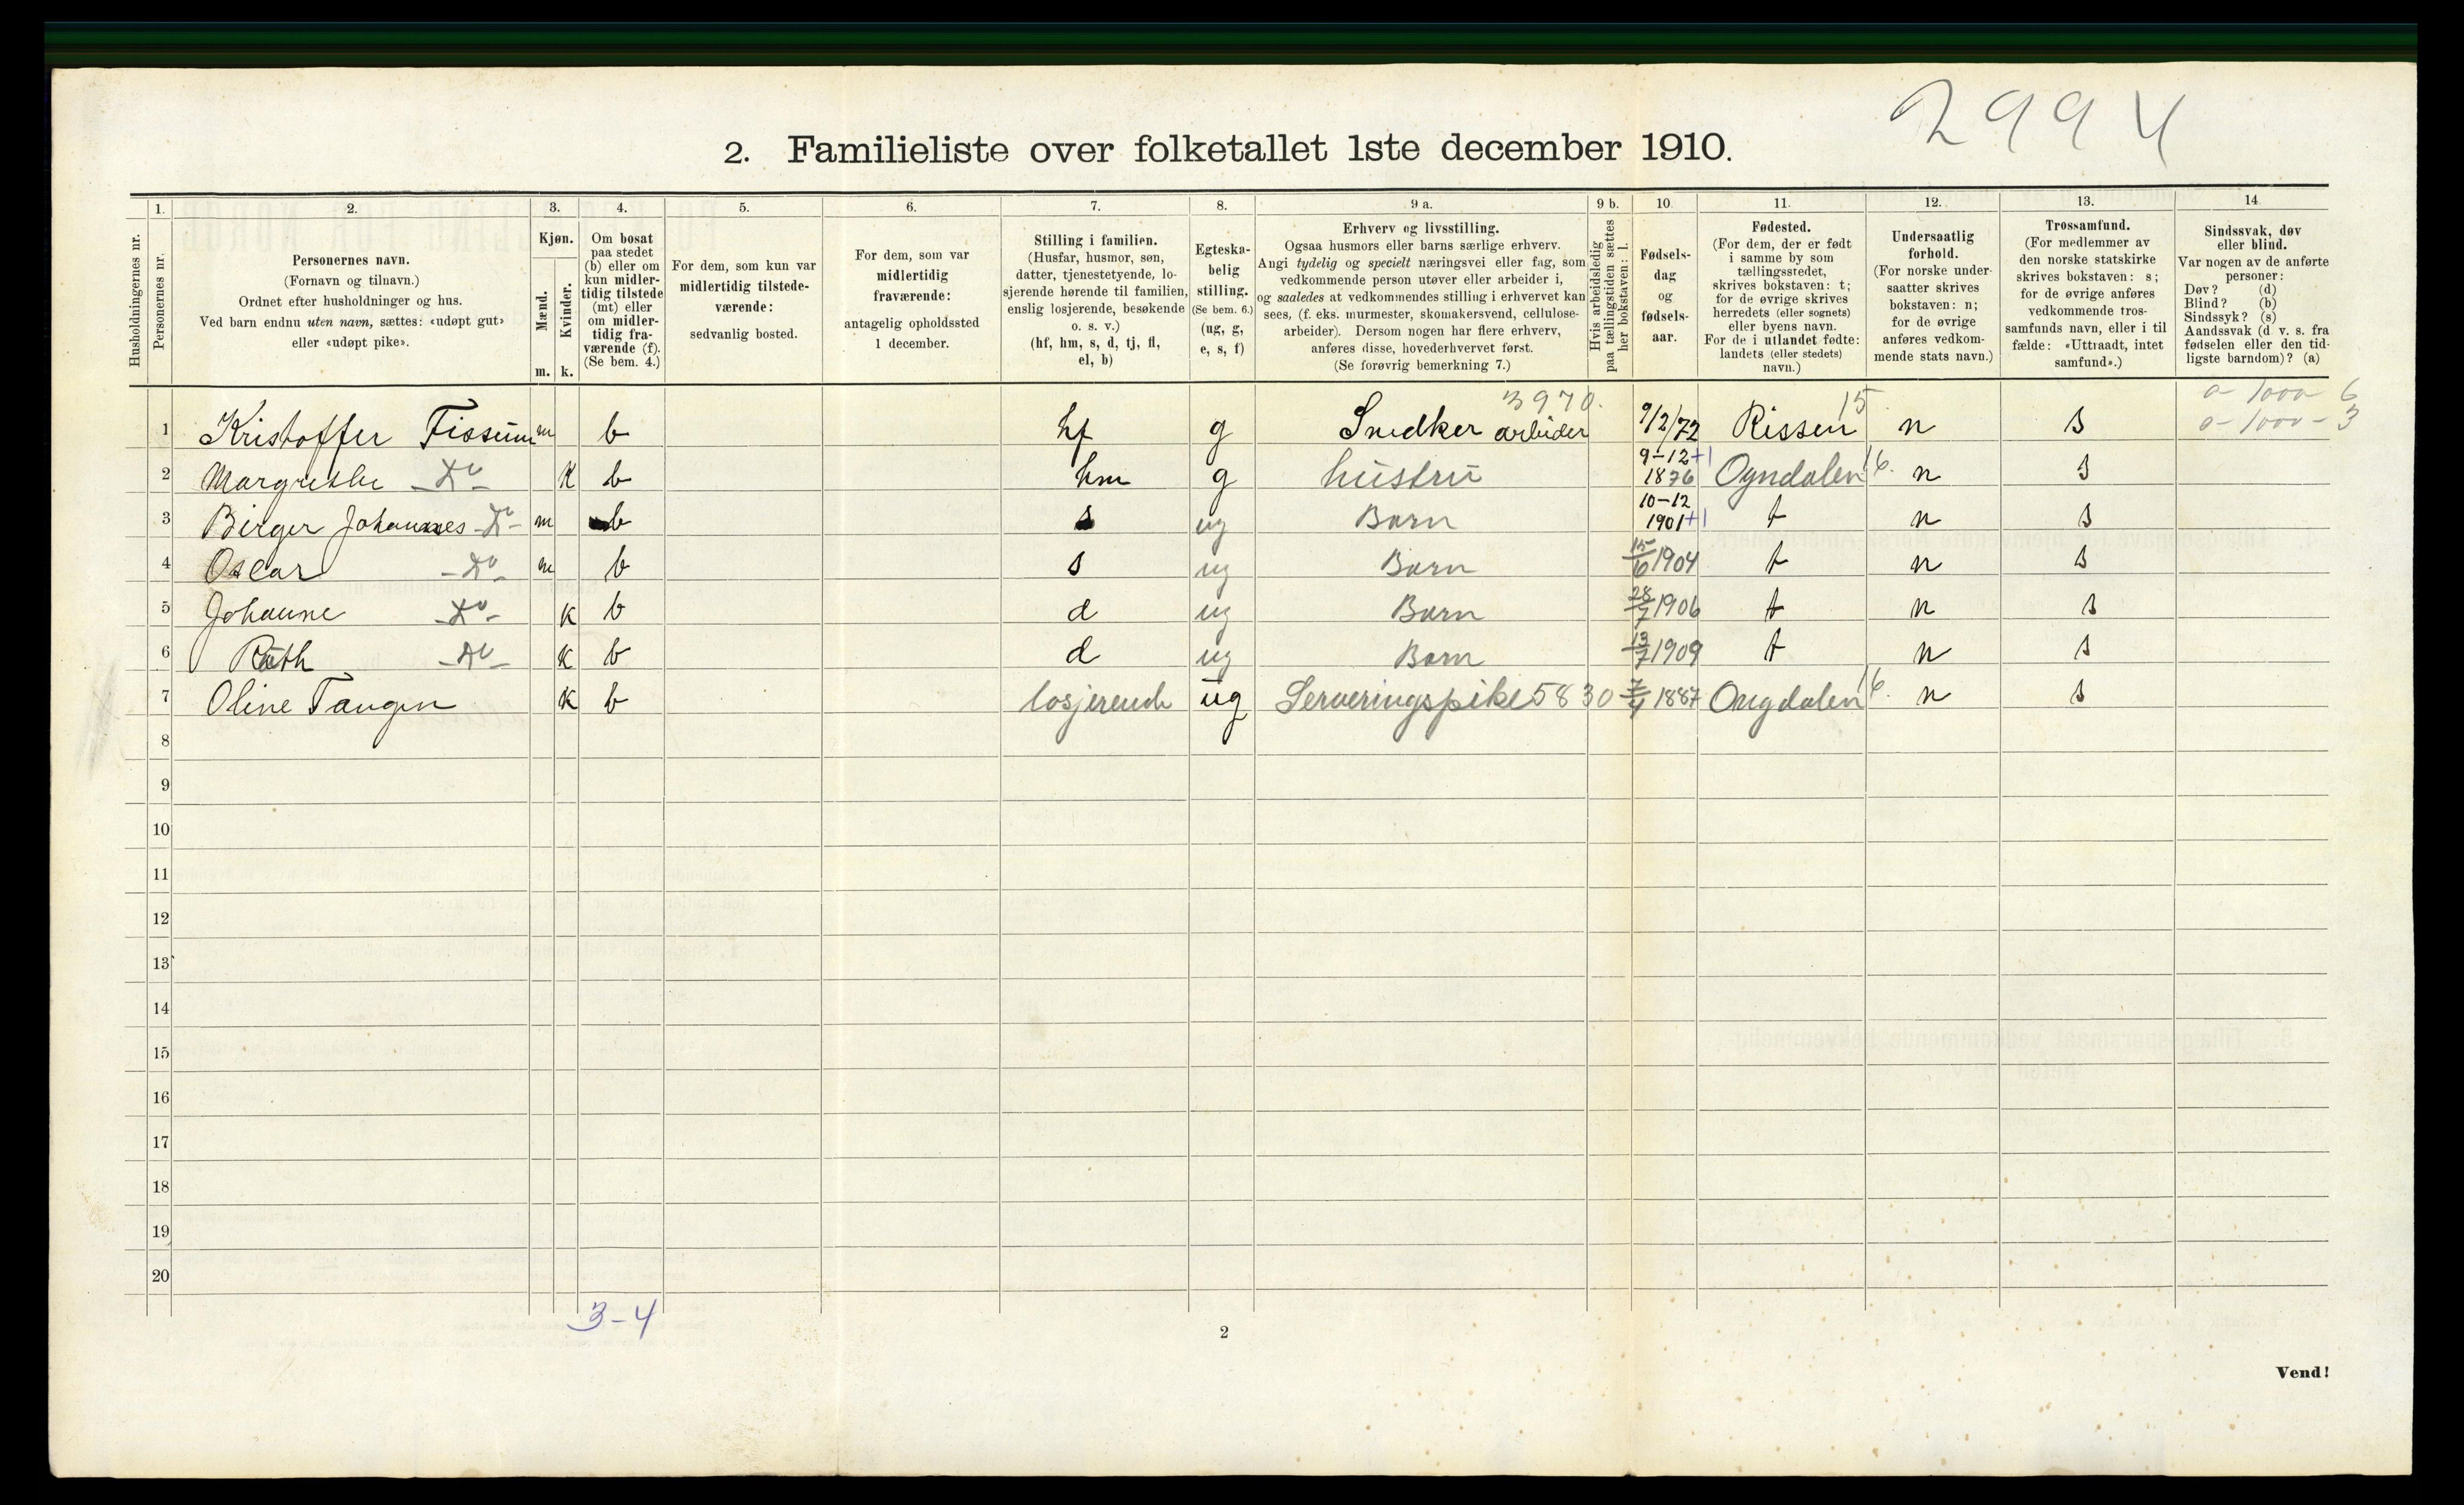 2994
2. Familieliste over folketallet 1ste december 1910.
1. 2. 3. 4. 5. 6. 7. 8. 9 a. 9 b. 10. 11. 12. 13. 14
Husholdningernes nr.
Personernes nr.
Personernes navn.
(Fornavn og tilnavn.)
Ordnet efter husholdninger og hus.
Ved barn endnu uten navn, sættes: «udøpt gut»
eller «udøpt pike».
Kjøn.
Mænd.
Kvinder.
m. k.
Om bosat
paa stedet
(b) eller om
kun midler-
tidig tilstede
(mt) eller
om midler-
tidig fra-
værende (f).
(Se bem. 4.)
For dem, som kun var
midlertidig tilstede-
værende:
sedvanlig bosted.
For dem, som var
midlertidig
fraværende:
antagelig opholdssted
1 december.
Stilling i familien.
(Husfar, husmor, søn,
datter, tjenestetyende, lo-
sjerende hørende til familien,
enslig losjerende, besøkende
o. s. v.)
(hf, hm, s, d, tj, fl,
el, b)
Egteska-
belig
stilling.
(Se bem. 6.)
(ug, g,
e, s, f)
Erhverv og livsstilling.
Ogsaa husmors eller barns særlige erhverv.
Angi tydelig og specielt næringsvei eller fag, som
vedkommende person utøver eller arbeider i,
og saaledes at vedkommendes stilling i erhvervet kan
sees, (f. eks. murmester, skomakersvend, cellulose-
arbeider). Dersom nogen har flere erhverv,
anføres disse, hovederhvervet først.
(Se forøvrig bemerkning 7.)
Hvis arbeidsledig
paa tællingstiden sættes
her bokstaven: l.
Fødsels-
dag
og
fødsels-
aar.
Fødested.
(For dem, der er født
i samme by som
tællingsstedet,
skrives bokstaven: t;
for de øvrige skrives
herredets (eller sognets)
eller byens navn.
For de i utlandet fødte:
landets (eller stedets)
navn.)
Undersaatlig
forhold.
(For norske under-
saatter skrives
bokstaven: n;
for de øvrige
anføres vedkom-
mende stats navn.)
Trossamfund.
(For medlemmer av
den norske statskirke
skrives bokstaven: s;
for de øvrige anføres
vedkommende tros-
samfunds navn, eller i til
fælde: «Uttraadt, intet
samfund».)
Sindssvak, døv
eller blind.
Var nogen av de anførte
personer:
Døv? (d)
Blind? (b)
Sindssyk? (s)
Aandssvak (d. v. s. fra
fødselen eller den tid-
ligste barndom)? (a)
3970. 15 0-1000-6
1 Kristoffer Fissum m b hf g Snedker arbeider 9/2/72 Rissen n s 0-1000-3
2 Margrethe -Do- K b hm g hustru 9-12+1 1876 Ogndalen 16. n s
3 Birger Johannes -Do- m b s ug Barn 10-12 1901+1 t n s
4 Oscar -Do- m b s ug Barn 15/6 1904 t n s
5 Johanne -Do- K b d ug Barn 28/7 1906 t n s
6 Ruth -Do- K b d ug Barn 13/7 1909 t n s
7 Oline Tangen K b losjerende ug Serveringspike 5830 7/4 1887 Ongdalen 16. n s
8
9
10
11
12
13
14
15
16
17
18
19
20
3-4
2
Vend!